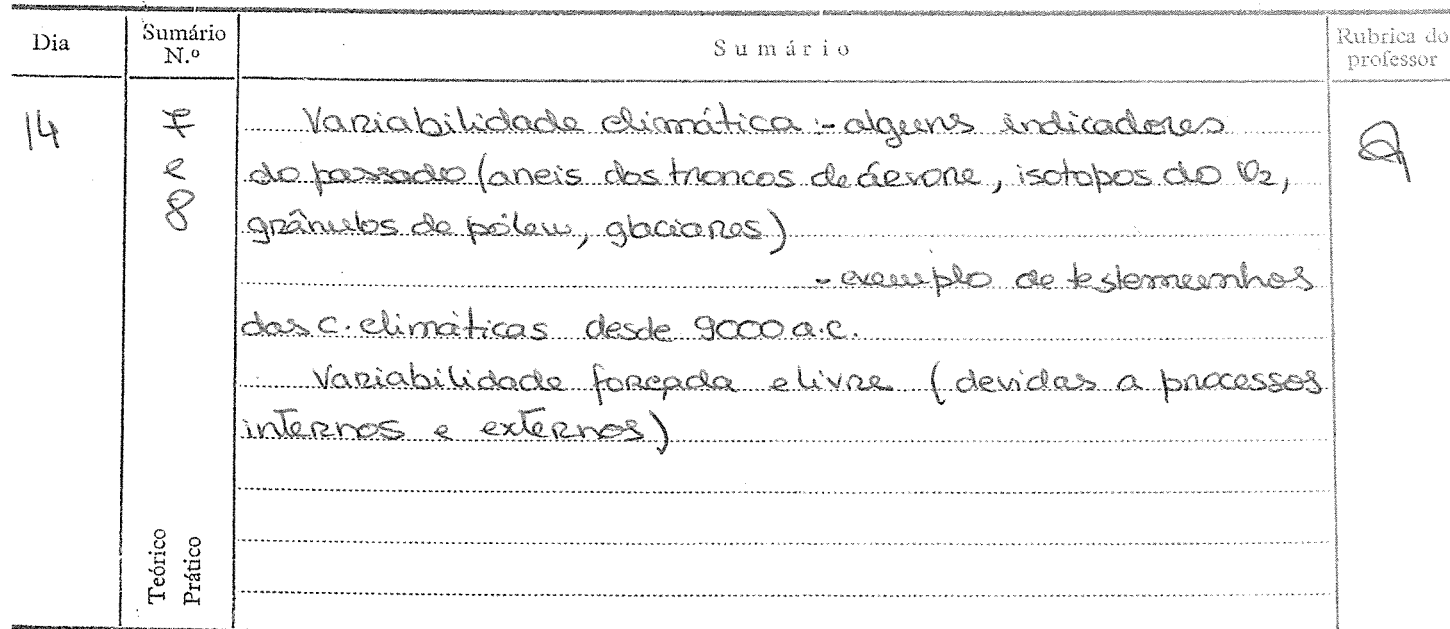 Dia
Sumário
N.º
Sumário
Rubrica do
professor
14
7
e
8
Variabilidade climática :- alguns indicadores
do passado (aneis dos troncos de árvore, isotopos do O2,
grânulos de pólen, glaciares)
- exemplo de testemunhos
das c. climáticas desde 9000 a.c.
Variabilidade forçada e livre (devidas a processos
internos e externos)
Teórico
Prático